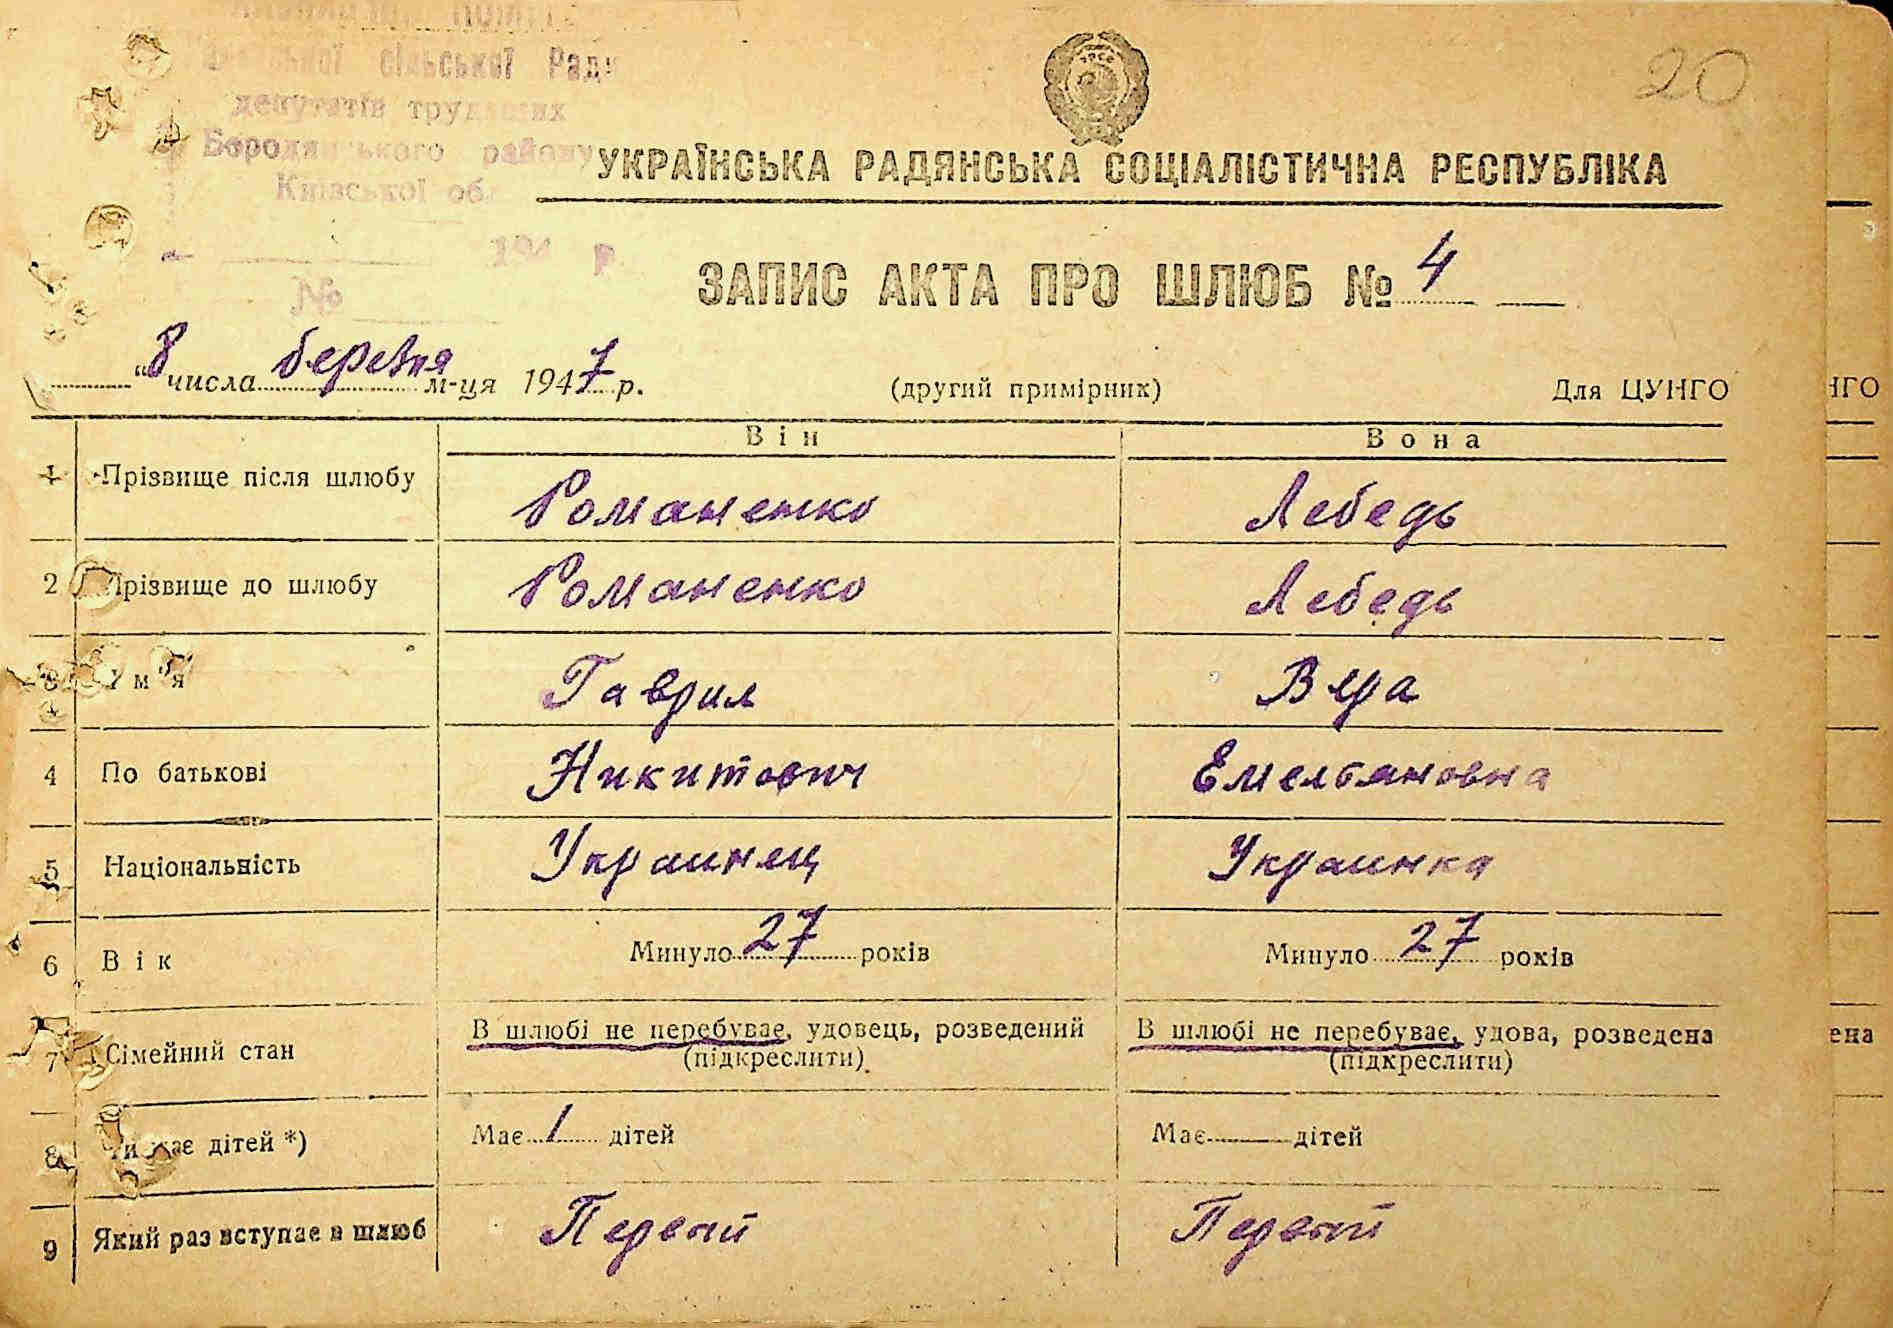 20
сільської Ради
депутатів трудящих
Бородянського району
Київської обл
194 р.
№
УРСР
УКРАЇНСЬКА РАДЯНСЬКА СОЦІАЛІСТИЧНА РЕСПУБЛІКА
ЗАПИС АКТА ПРО ШЛЮБ № 4
"8 числа березня м-ця 1947 р. (другий примірник) Для ЦУНГО НГО
Він Вона
1 Прізвище після шлюбу Романенко Лебедь
2 Прізвище до шлюбу Романенко Лебедь
3 Ім'я Гаврил Вера
4 По батькові Никитович Емельяновна
5 Національність Украинец Украинка
6 Вік Минуло 27 років Минуло 27 років
7 Сімейний стан В шлюбі не перебуває, удовець, розведений В шлюбі не перебуває, удова, розведена ена
(підкреслити) (підкреслити)
8 Чи має дітей *) Має 1 дітей Має — дітей
9 Який раз вступає в шлюб Первый Первый